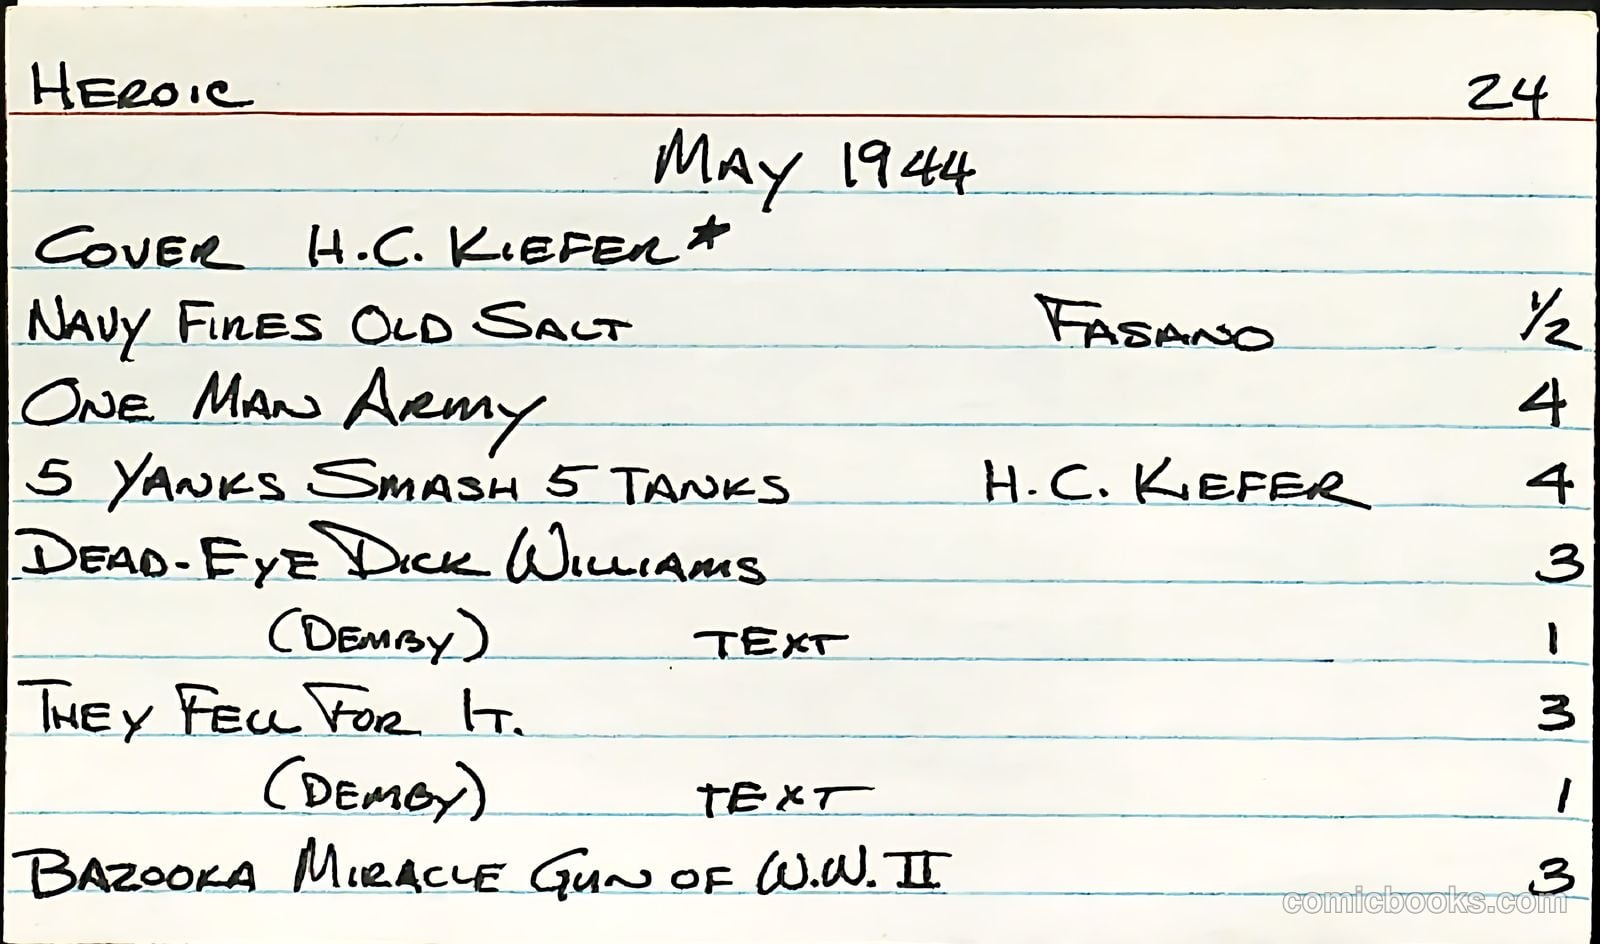 HEROIC 24
MAY 1944
COVER H.C. KIEFER★
NAVY FIRES OLD SALT FASANO 1/2
ONE MAN ARMY 4
5 YANKS SMASH 5 TANKS H.C. KIEFER 4
DEAD-EYE DICK WILLIAMS 3
(DEMBY) TEXT 1
THEY FELL FOR IT. 3
(DEMBY) TEXT 1
BAZOOKA MIRACLE GUN OF W.W. II 3
comicbooks.com